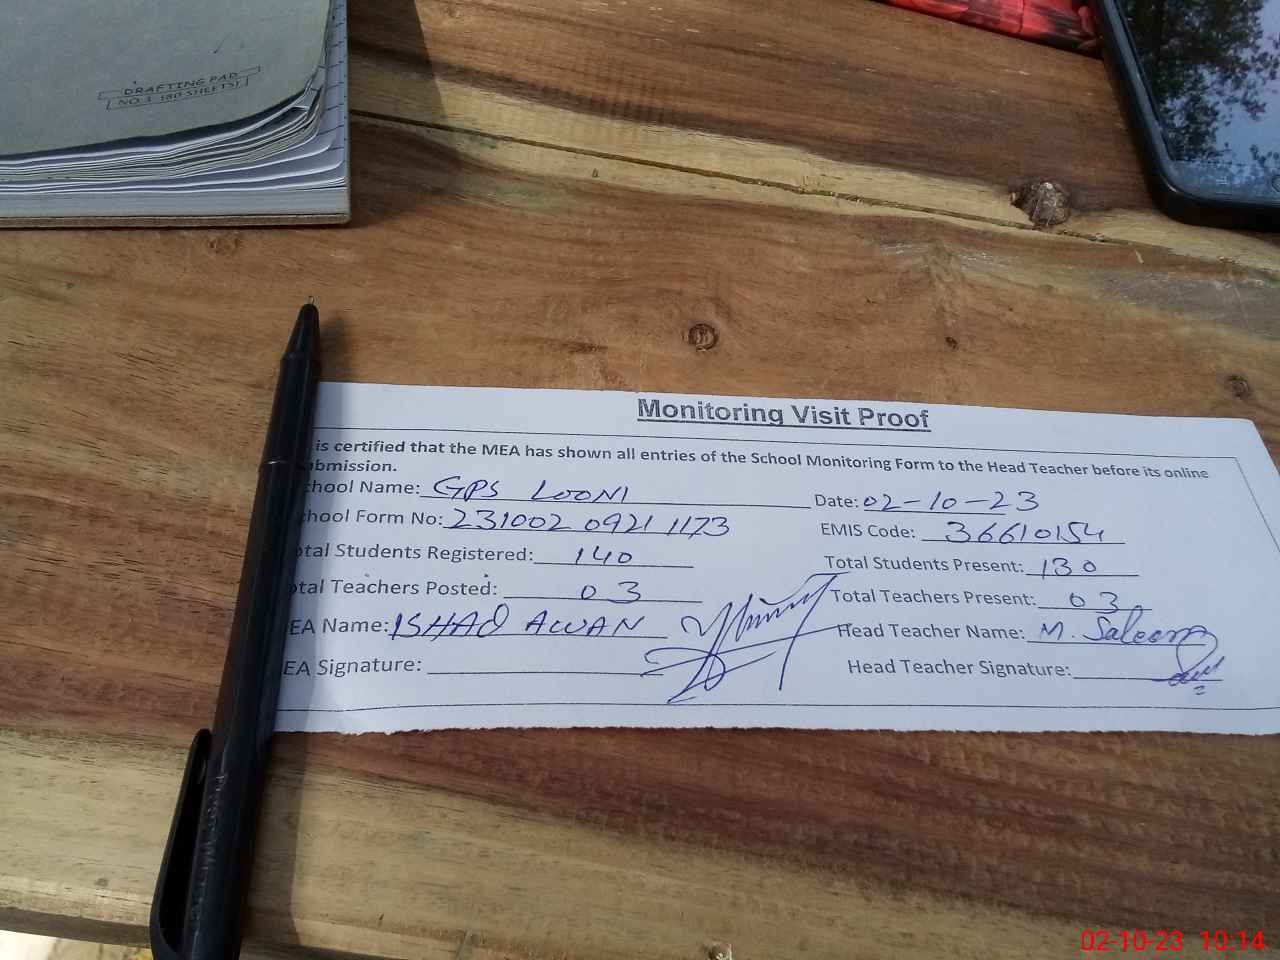 DRAFTING PAD
NO.3 (80 SHEETS)
Monitoring Visit Proof
is certified that the MEA has shown all entries of the School Monitoring Form to the Head Teacher before its online
bmission.
chool Name: GPS LOONI Date: 02-10-23
chool Form No: 231002 0921 1173 EMIS Code: 36610154
otal Students Registered: 140 Total Students Present: 130
otal Teachers Posted: 03 Total Teachers Present: 03
EA Name: ISHAQ AWAN Head Teacher Name: M. Saleem
EA Signature: Head Teacher Signature:
02-10-23 10:14